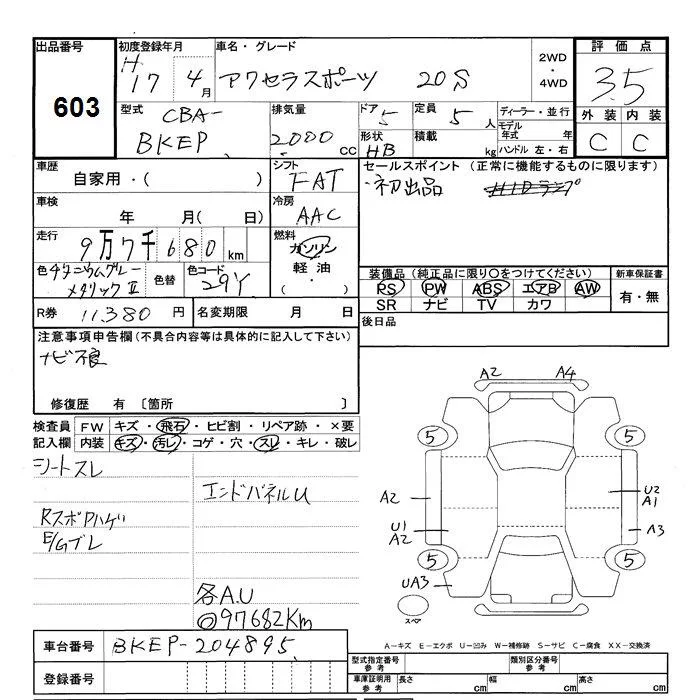 出品番号
603
初度登録年月
H
17 4月
車名・グレード
アクセラスポーツ 20S
2WD
・
4WD
評価点
3.5
外装 内装
C C
型式
CBA-
BKEP
排気量
2000 CC
ドア 5
定員 5人
形状
HB
積載 kg
ディーラー・並行
モデル年式 年
ハンドル 左・右
車歴
自家用・( )
シフト
FAT
車検
年 月( 日)
冷房
AAC
走行
9万7千680km
燃料
ガソリン
軽油
( ・ )
色 チタニウムグレーメタリックⅡ
色替
色コード
29Y
R券 11,380円
名変期限 月 日
セールスポイント (正常に機能するものに限ります)
・初出品
装備品(純正品に限り○をつけてください)
RS PW ABS エアB AW
SR ナビ TV カワ
新車保証書
有・無
後日品
注意事項申告欄(不具合内容等は具体的に記入して下さい)
ナビ不良
修復歴 有〔箇所 〕
検査員記入欄
FW キズ・飛石・ヒビ割・リペア跡・×要
内装 キズ・汚レ・コゲ・穴・スレ・キレ・破レ
シートスレ
エンドパネルU
RスポPハゲ
E/Gブレ
各A.U
◎97682Km
A2 A4
5 5
A2
U2
A1
U1
A2
A3
5 5
UA3
スペア
A-キズ E-エクボ U-凹み W-補修跡 S-サビ C-腐食 XX-交換済
車台番号 BKEP-204895
登録番号
型式指定番号 参考
類別区分番号 参考
車庫証明用 参考
長さ cm
幅 cm
高さ cm